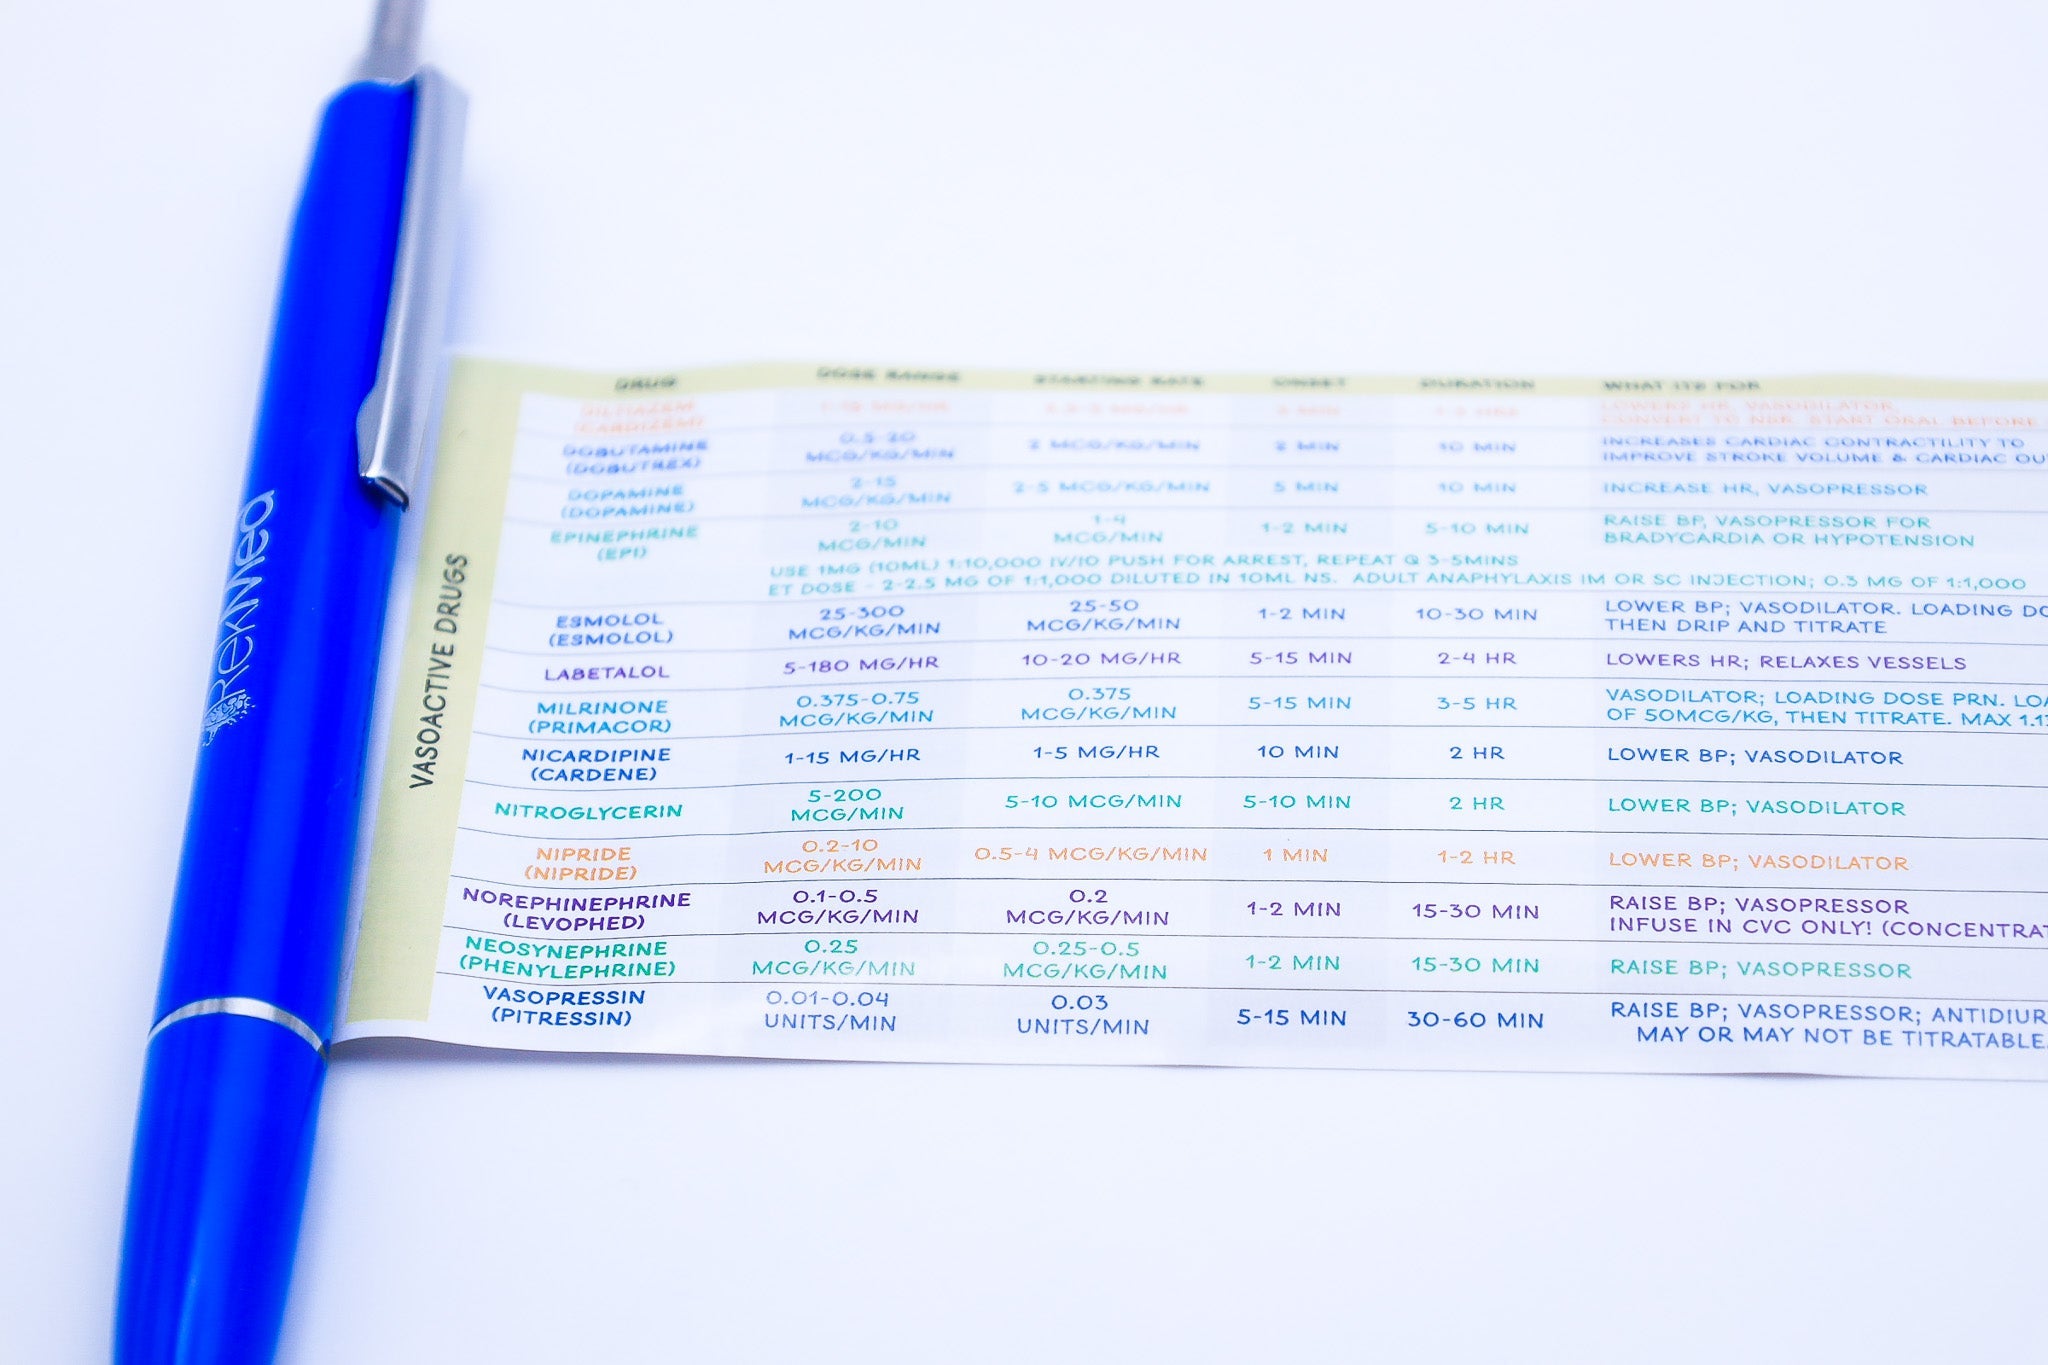 RekMed
VASOACTIVE DRUGS
DRUG DOSE RANGE STARTING RATE ONSET DURATION WHAT ITS FOR
DILTIAZEM LOWERS HR, VASODILATOR,
(CARDIZEM) CONVERT TO NSR. START ORAL BEFORE
DOBUTAMINE 0.5-20 2 MCG/KG/MIN 2 MIN 10 MIN INCREASES CARDIAC CONTRACTILITY TO
(DOBUTREX) MCG/KG/MIN IMPROVE STROKE VOLUME & CARDIAC OU
DOPAMINE 2-15 2-5 MCG/KG/MIN 5 MIN 10 MIN INCREASE HR, VASOPRESSOR
(DOPAMINE) MCG/KG/MIN
EPINEPHRINE 2-10 1-4 1-2 MIN 5-10 MIN RAISE BP, VASOPRESSOR FOR
(EPI) MCG/MIN MCG/MIN BRADYCARDIA OR HYPOTENSION
USE 1MG (10ML) 1:10,000 IV/IO PUSH FOR ARREST, REPEAT Q 3-5MINS
ET DOSE - 2-2.5 MG OF 1:1,000 DILUTED IN 10ML NS. ADULT ANAPHYLAXIS IM OR SC INJECTION; 0.3 MG OF 1:1,000
ESMOLOL 25-300 25-50 1-2 MIN 10-30 MIN LOWER BP; VASODILATOR. LOADING DO
(ESMOLOL) MCG/KG/MIN MCG/KG/MIN THEN DRIP AND TITRATE
LABETALOL 5-180 MG/HR 10-20 MG/HR 5-15 MIN 2-4 HR LOWERS HR; RELAXES VESSELS
MILRINONE 0.375-0.75 0.375 5-15 MIN 3-5 HR VASODILATOR; LOADING DOSE PRN. LOA
(PRIMACOR) MCG/KG/MIN MCG/KG/MIN OF 50MCG/KG, THEN TITRATE. MAX 1.1
NICARDIPINE 1-15 MG/HR 1-5 MG/HR 10 MIN 2 HR LOWER BP; VASODILATOR
(CARDENE)
NITROGLYCERIN 5-200 5-10 MCG/MIN 5-10 MIN 2 HR LOWER BP; VASODILATOR
MCG/MIN
NIPRIDE 0.2-10 0.5-4 MCG/KG/MIN 1 MIN 1-2 HR LOWER BP; VASODILATOR
(NIPRIDE) MCG/KG/MIN
NOREPHINEPHRINE 0.1-0.5 0.2 1-2 MIN 15-30 MIN RAISE BP; VASOPRESSOR
(LEVOPHED) MCG/KG/MIN MCG/KG/MIN INFUSE IN CVC ONLY! (CONCENTRAT
NEOSYNEPHRINE 0.25 0.25-0.5 1-2 MIN 15-30 MIN RAISE BP; VASOPRESSOR
(PHENYLEPHRINE) MCG/KG/MIN MCG/KG/MIN
VASOPRESSIN 0.01-0.04 0.03 5-15 MIN 30-60 MIN RAISE BP; VASOPRESSOR; ANTIDIUR
(PITRESSIN) UNITS/MIN UNITS/MIN MAY OR MAY NOT BE TITRATABLE.